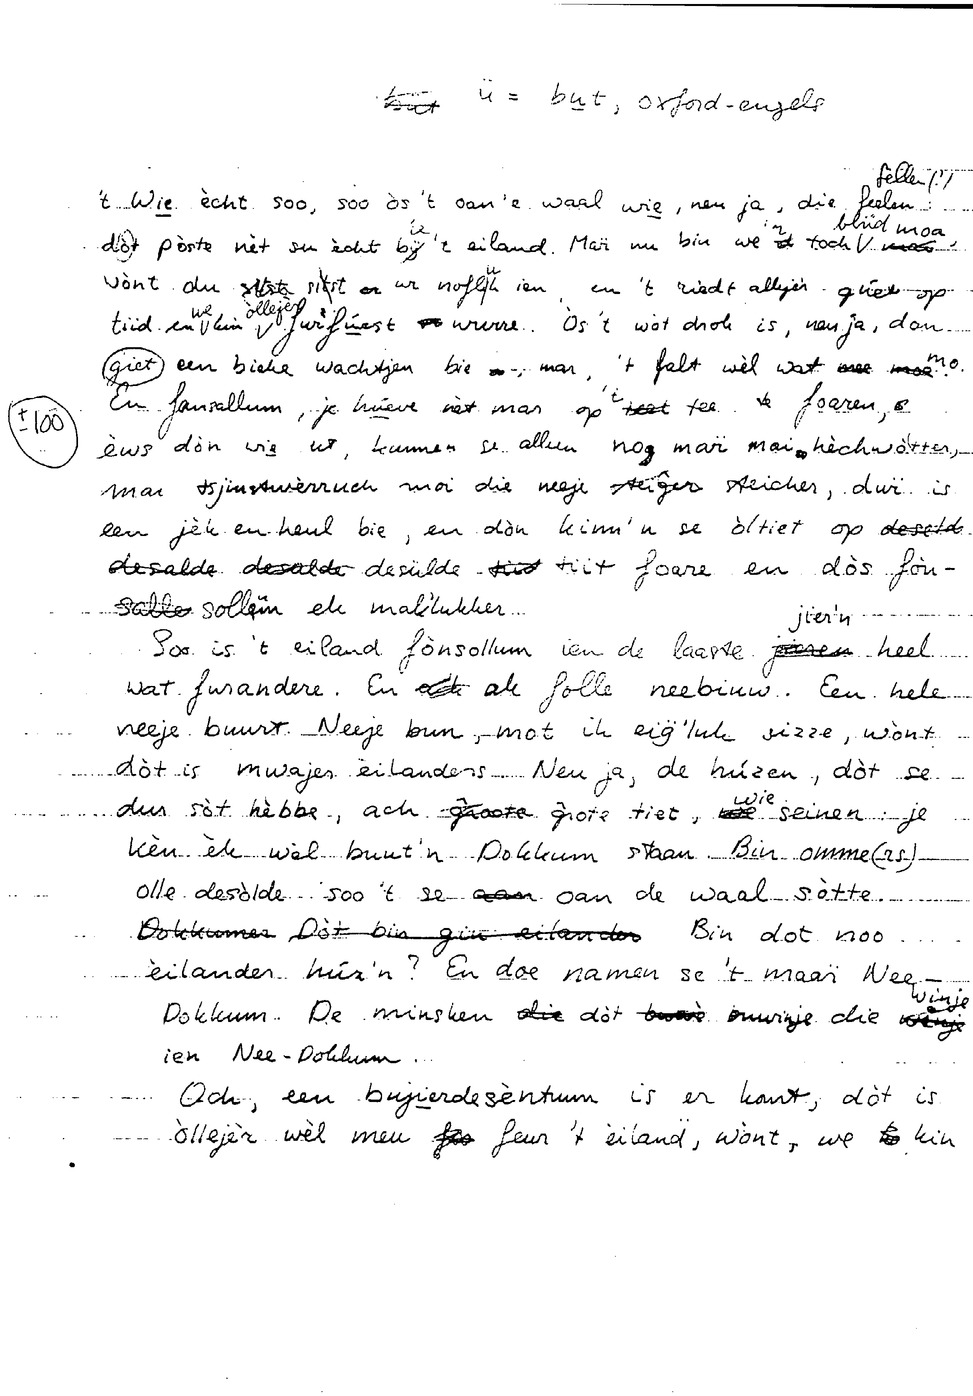 ü = but, oxford-engels
fellen(?)
't Wie ècht soo, soo òs 't oan 'e waal wie, neu ja, die feelen
blüd moa
dòt pòste nèt su ècht bij 't eiland. Mar nu bin we toch
wònt du ur noflük ien, en 't riedt allejèr op
tiid en we kin òllejèr wurre. Òs 't wòt drok is, neu ja, dan
giet een bieke wachtjen bie, mar, 't falt wèl wat mo.
± 100
En fansallum, je húeve nèt mar op 't tee te foaren,
èws dòn wie ut, kunnen se alleen nog mar mai hèchwòtter,
mar tsjinstwerruch moi die neeje steicher, dur is
een jèk en heul bie, en dòn kinn'n se òltiet op
desulde tiit foare en dòs fòn-
sollum ek makkelukker
jier'n
Soo is 't eiland fònsollum ien de laaste heel
wat furandere. En ak folle neebiuw. Een hele
neeje buurt. Neeje bun, mot ik eig'luk sizze, wònt
dòt is mwajer eilanders. Neu ja, de húzen, dòt se
dur sòt hèbbe, ach grote tiet, wie seinen: je
kèn èk wèl buut'n Dokkum staan. Bin omme(rs)
olle desòlde soo 't se oan de waal sòtte.
Bin dot noo
eilander húz'n? En doe namen se 't maar Nee-
Dokkum. De minsken dòt die winje
ien Nee-Dokkum.
Och, een bujierdesèntrum is er komt, dòt is
òllejèr wèl meu feur 't eiland, wònt, we kin